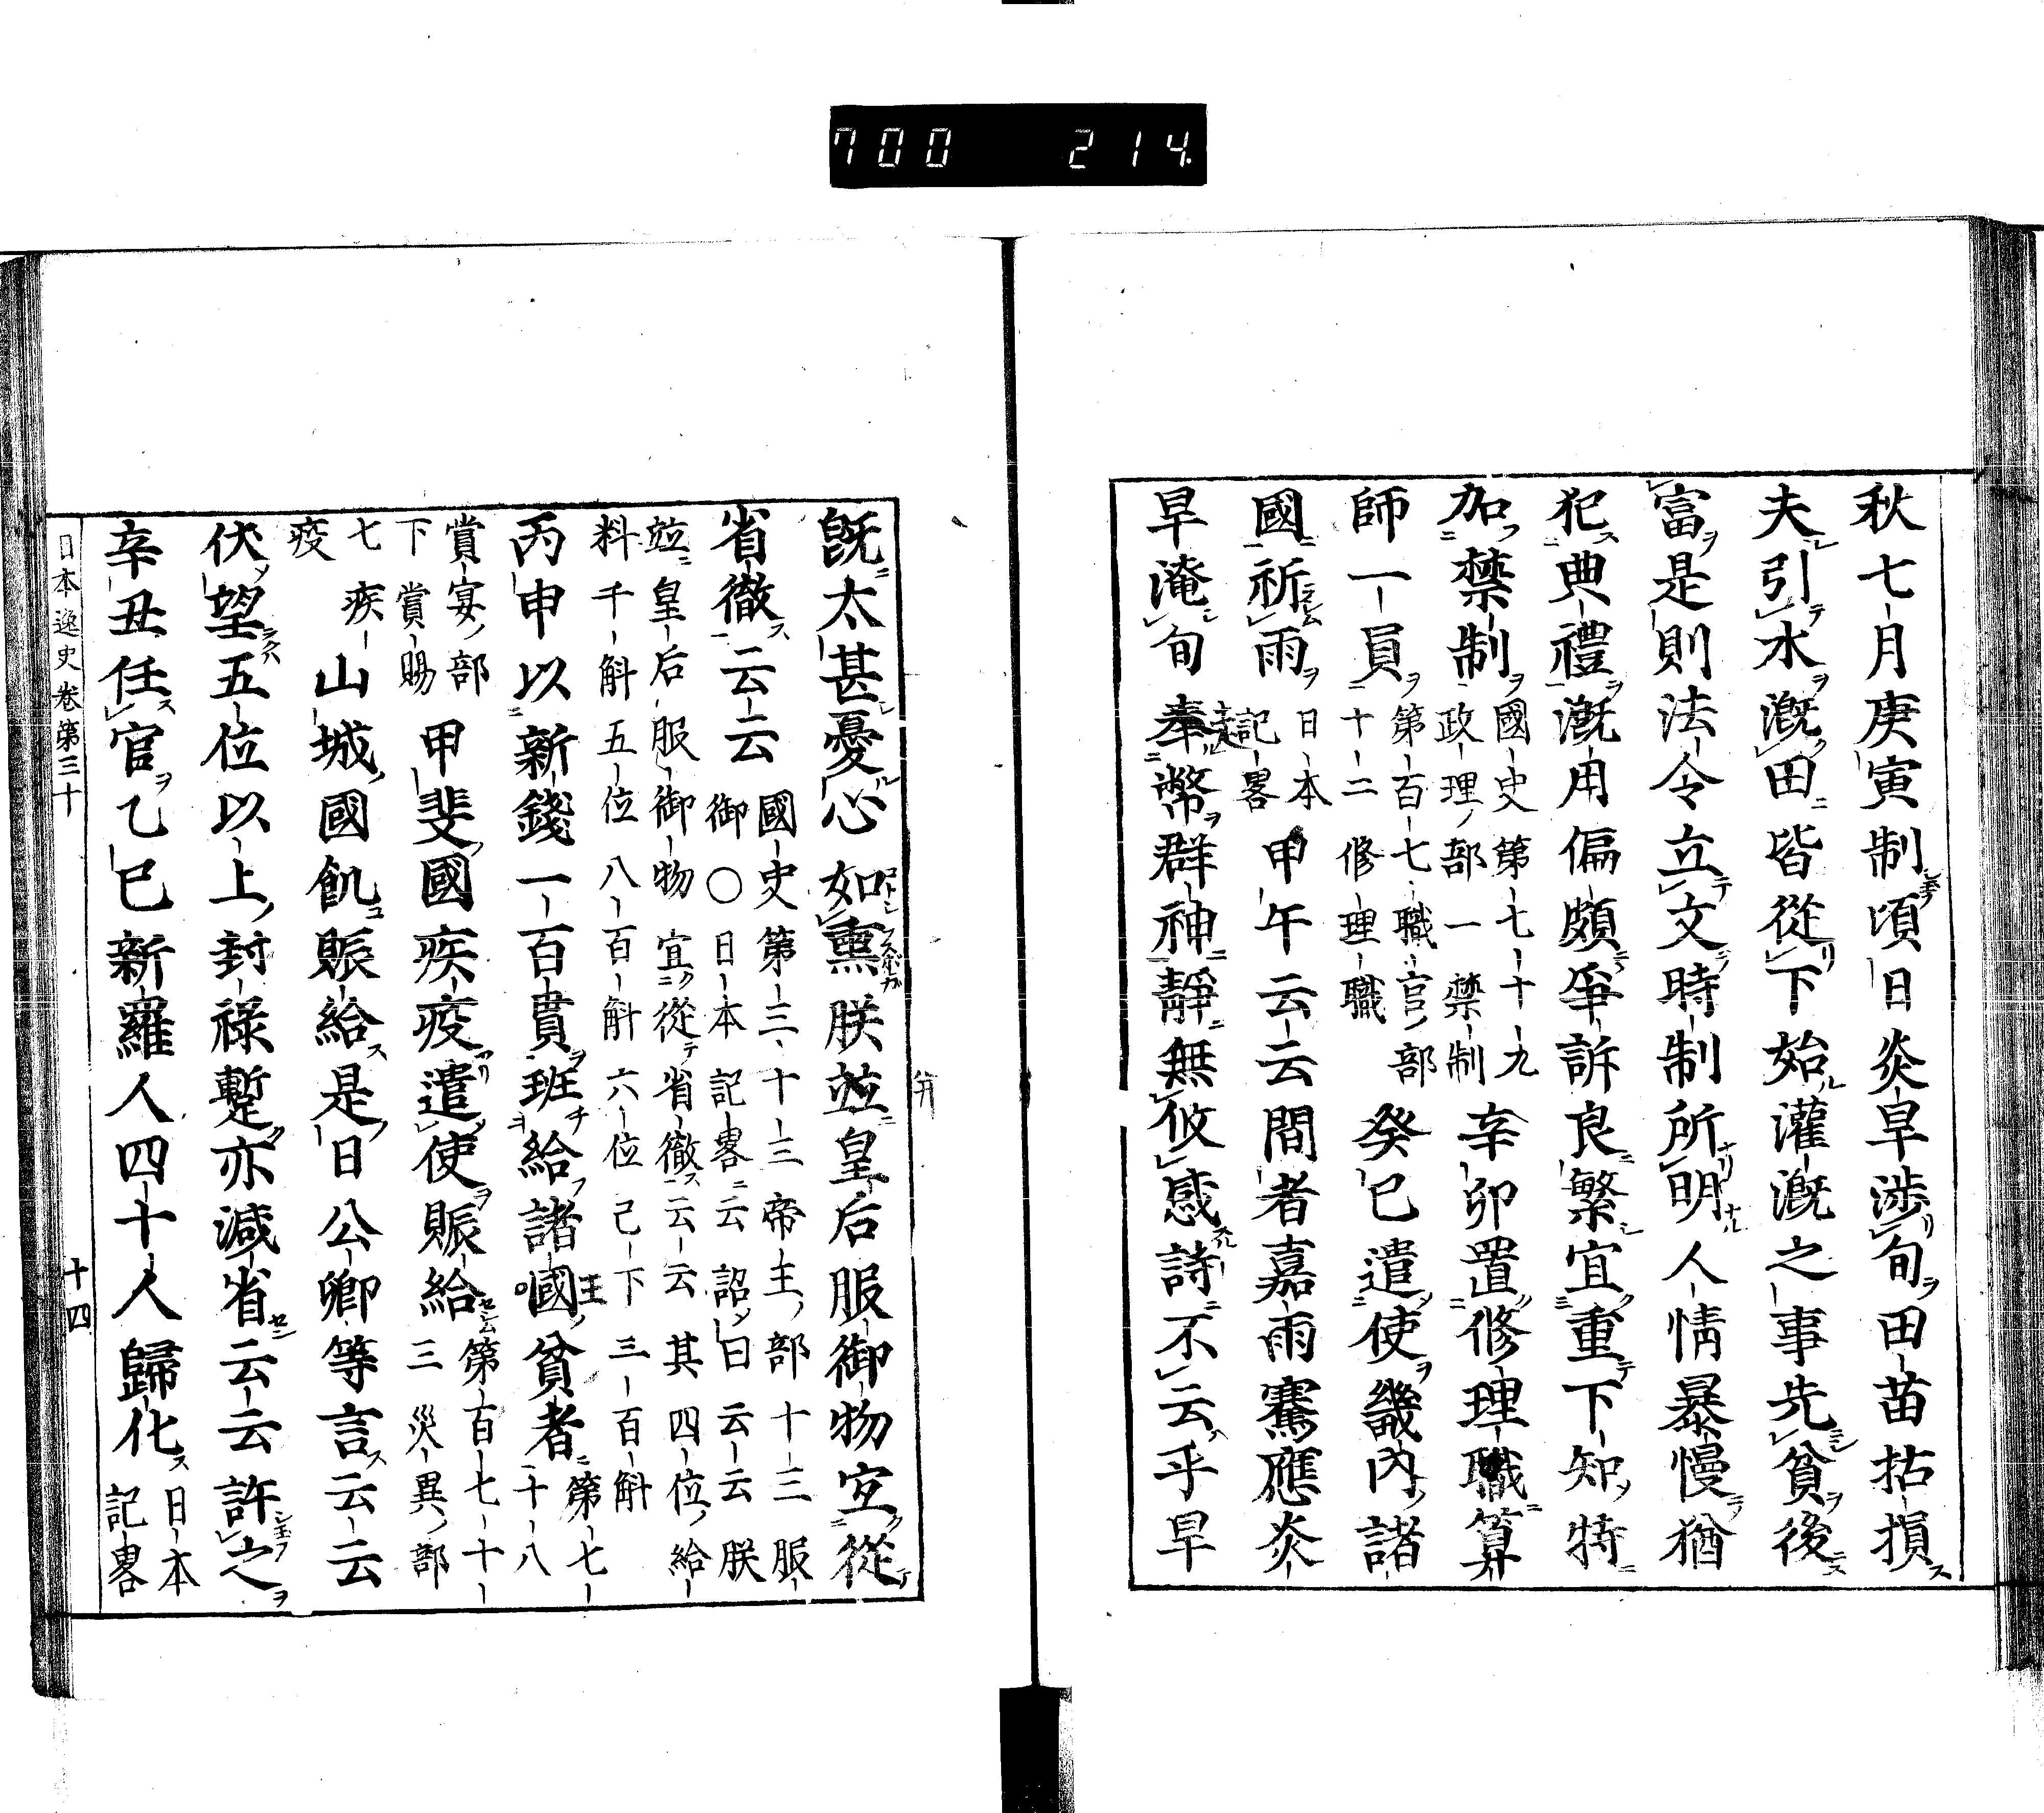 700 214
秋七月庚寅制頃日炎旱渉旬田苗拈損
夫引水漑田皆從下始灌漑之事先貧後
富是則法令立文時制所明人情暴慢猶
犯典禮漑用偏頗爭訴良繁宜重下知特
加禁制
國史第七十九
政理部一禁制
辛卯置修理職算
師一員
第百七職官部
十二修理職
癸巳遣使畿内諸
國祈雨
日本
記畧
甲午云云間者嘉雨騫應炎
旱淹旬奉幣群神靜無攸感詩不云乎旱
既太甚憂心如熏朕並皇后服御物宜從
省徹云云
國史第三十三帝主部十三服
御〇日本記畧云詔曰云云朕
並皇后服御物宜從省徹云云其四位給
料千斛五位八百斛六位己下三百斛
丙申以新錢一百貫班給諸國貧者
第七
十八
賞宴部
下賞賜
甲斐國疾疫遣使賑給
第百七十
三災異部
七疾
疫
山城國飢賑給是日公卿等言云云
伏望五位以上封祿蹔亦減省云云許之
辛丑任官乙巳新羅人四十人歸化
日本
記畧
日本逸史卷第三十
十四